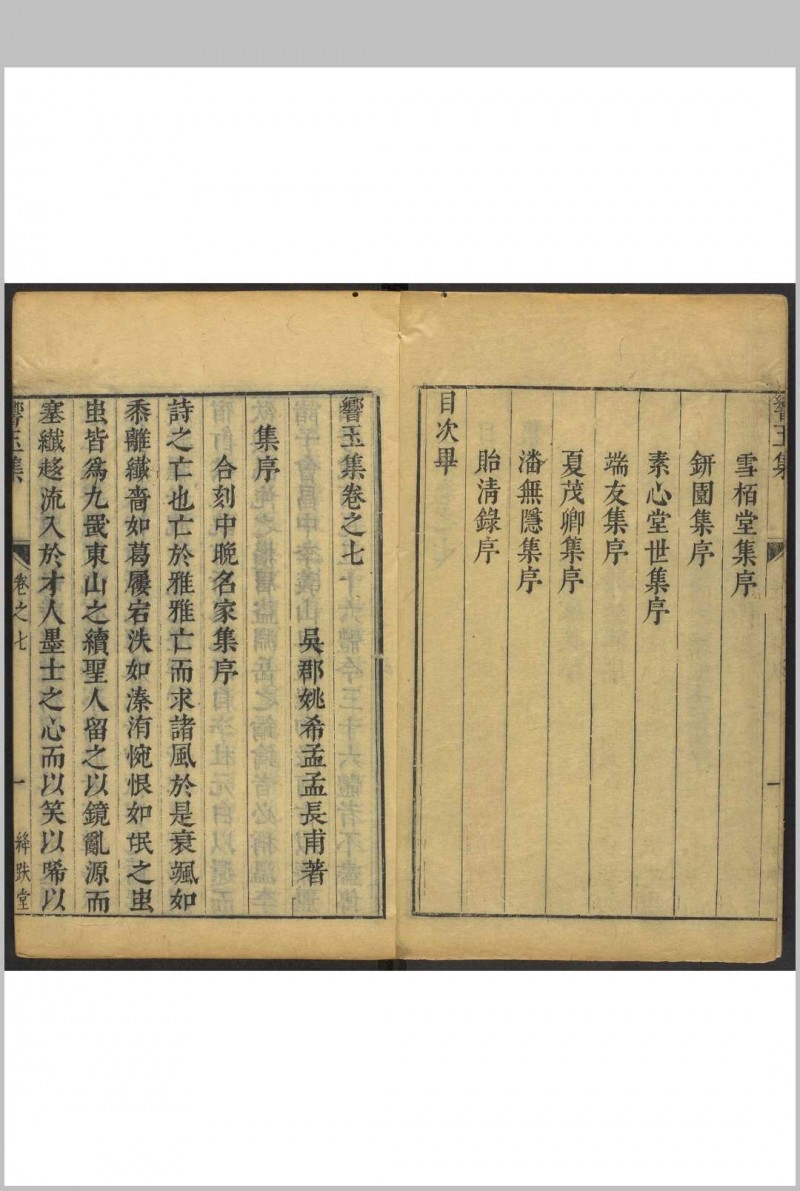 響玉集
雪栢堂集序
鈃園集序
素心堂世集序
端友集序
夏茂卿集序
潘無隱集序
貽清錄序
目次畢
響玉集卷之七
吳郡姚希孟孟長甫著
集序
合刻中晚名家集序
詩之亡也亡於雅雅亡而求諸風於是衰颯如
黍離纖嗇如葛屨宕泆如溱洧惋恨如氓之蚩
蚩皆為九罭東山之續聖人留之以鏡亂源而
塞纖趍流入於才人墨士之心而以笑以啼以
響玉集
卷之七
一
絳趺堂